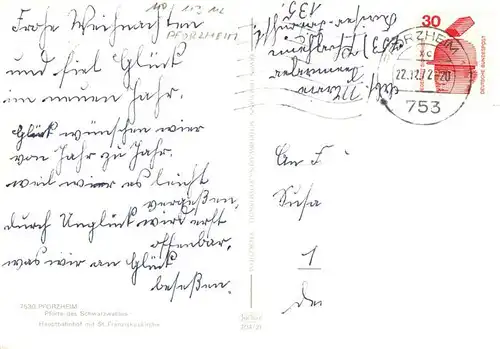 PFORZHEIM
Frohe Weihnachten
und viel Glück
im neuen Jahr.
Glück wünschen wier
von Jahr zu Jahr,
weil wier es leicht
vergeßen,
durch Unglück wird erst
offenbar,
was wir an Glück
beseßen.
7530 PFORZHEIM
Pforte des Schwarzwaldes
Hauptbahnhof mit St. Franziskuskirche
753 Pforzheim
135
30
DEUTSCHE BUNDESPOST
PFORZHEIM
22.12.72-20
753
An F
Susa
1